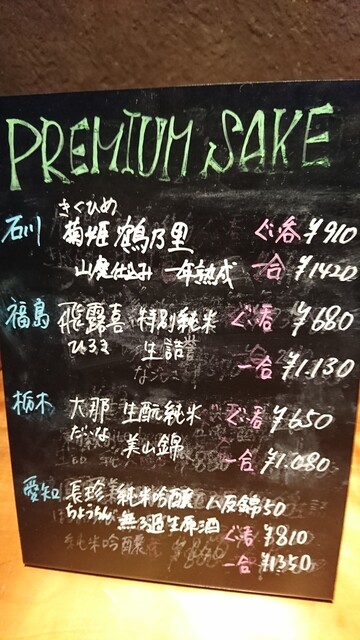 PREMIUM SAKE
きくひめ
石川 菊姫 鶴乃里 ぐい呑 ¥910
山廃仕込み 一年熟成 一合 ¥1420
福島 飛露喜 特別純米 ぐい呑 ¥680
ひろき 生詰
一合 ¥1.130
栃木 大那 生酛純米 ぐい呑 ¥650
だいな 美山錦
一合 ¥1.080
愛知 長珍 純米吟醸 八反錦50
ちょうちん 無ろ過生原酒
純米吟醸 ぐい呑 ¥810
一合 ¥1350